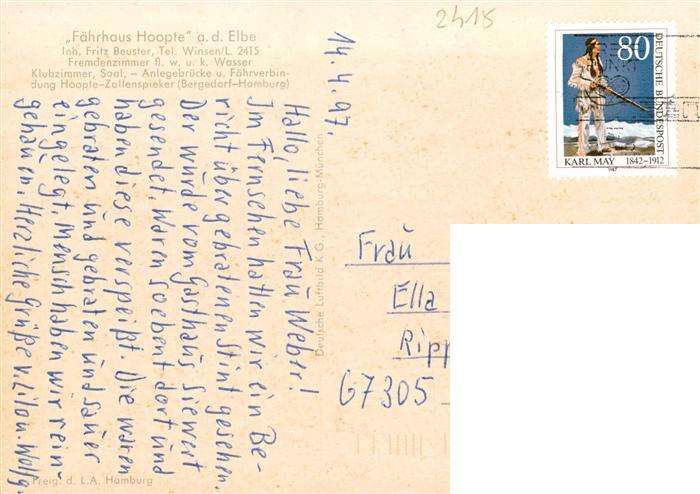 2415
„Fährhaus Hoopte" a. d. Elbe
Inh. Fritz Beuster, Tel. Winsen/L. 2415
Fremdenzimmer fl. w. u. k. Wasser
Klubzimmer, Saal, – Anlegebrücke u. Fährverbin-
dung Hoopte-Zollenspieker (Bergedorf-Hamburg)
14.4.97.
Hallo, liebe Frau Weber!
Im Fernsehen hatten wir ein Be-
richt über gebratenen Stint gesehen.
Der wurde vom Gasthaus Siewert
gesendet. Waren soebent dort und
haben diese verspeißt. Die waren
gebraten und gebraten und sauer
eingelegt. Mensch haben wir rein-
gehauen. Herzliche Grüße v. Lilo u. Wolfg.
Freig. d. L.A. Hamburg
Deutsche Luftbild K.G., Hamburg-München
80
DEUTSCHE BUNDESPOST
KARL MAY 1842-1912
1987
Frau
Ella
Ripp
67305